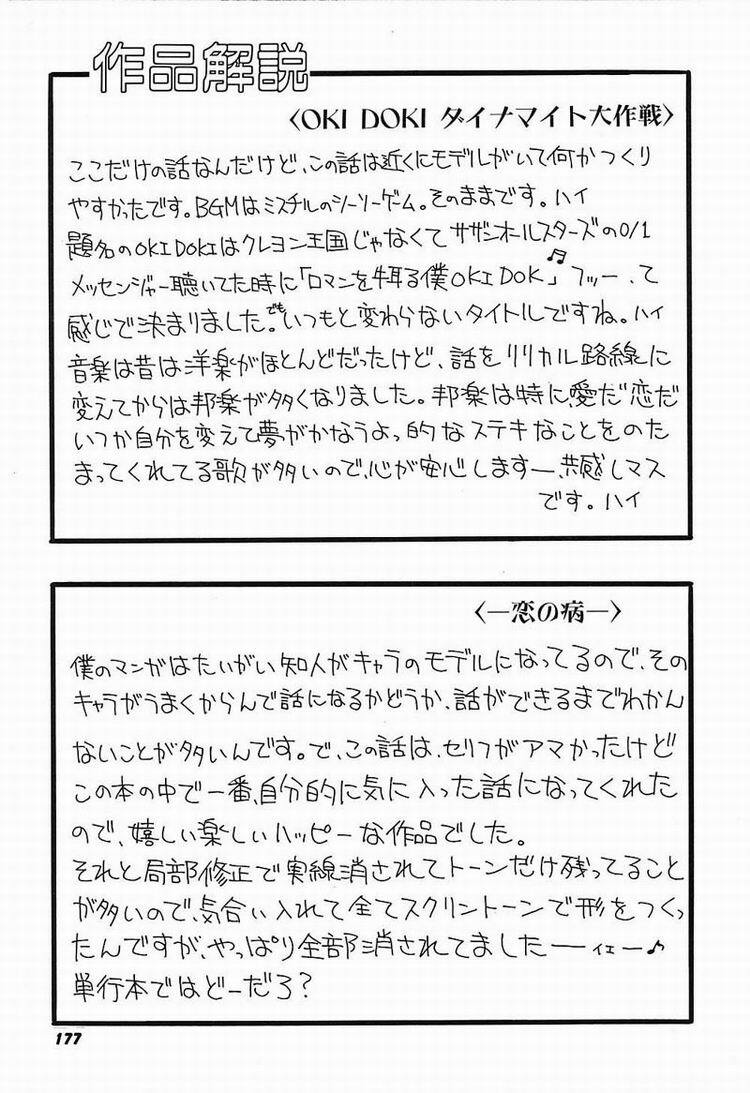 作品解説
〈OKI DOKI ダイナマイト大作戦〉
ここだけの話なんだけど、この話は近くにモデルがいて何かつくり
やすかったです。BGMはミスチルのシーソーゲーム。そのままです。ハイ
題名のOKI DOKIはクレヨン王国じゃなくてサザンオールスターズの0/1
メッセンジャー聴いてた時に「ロマンを牛耳る僕OKI DOK」♫フッー、て
感じで決まりました。でもいつもと変わらないタイトルですね。ハイ
音楽は昔は洋楽がほとんどだったけど、話をリリカル路線に
変えてからは邦楽が多くなりました。邦楽は特に、愛だ"恋だ
いつか自分を変えて夢がかなうよっ的なステキなことをのた
まってくれてる歌が多いので、心が安心しますー、共感しマス
です。ハイ
〈―恋の病―〉
僕のマンガはたいがい知人がキャラのモデルになってるので、その
キャラがうまくからんで話になるかどうか、話ができるまでわかん
ないことが多いんです。で、この話は、セリフがアマかったけど
この本の中で一番、自分的に気に入った話になってくれた
ので、嬉しい楽しいハッピーな作品でした。
それと局部修正で実線消されてトーンだけ残ってること
が多いので、気合い入れて全てスクリントーンで形をつくっ
たんですが、やっぱり全部消されてましたーーィェー♪
単行本ではどーだろ?
177